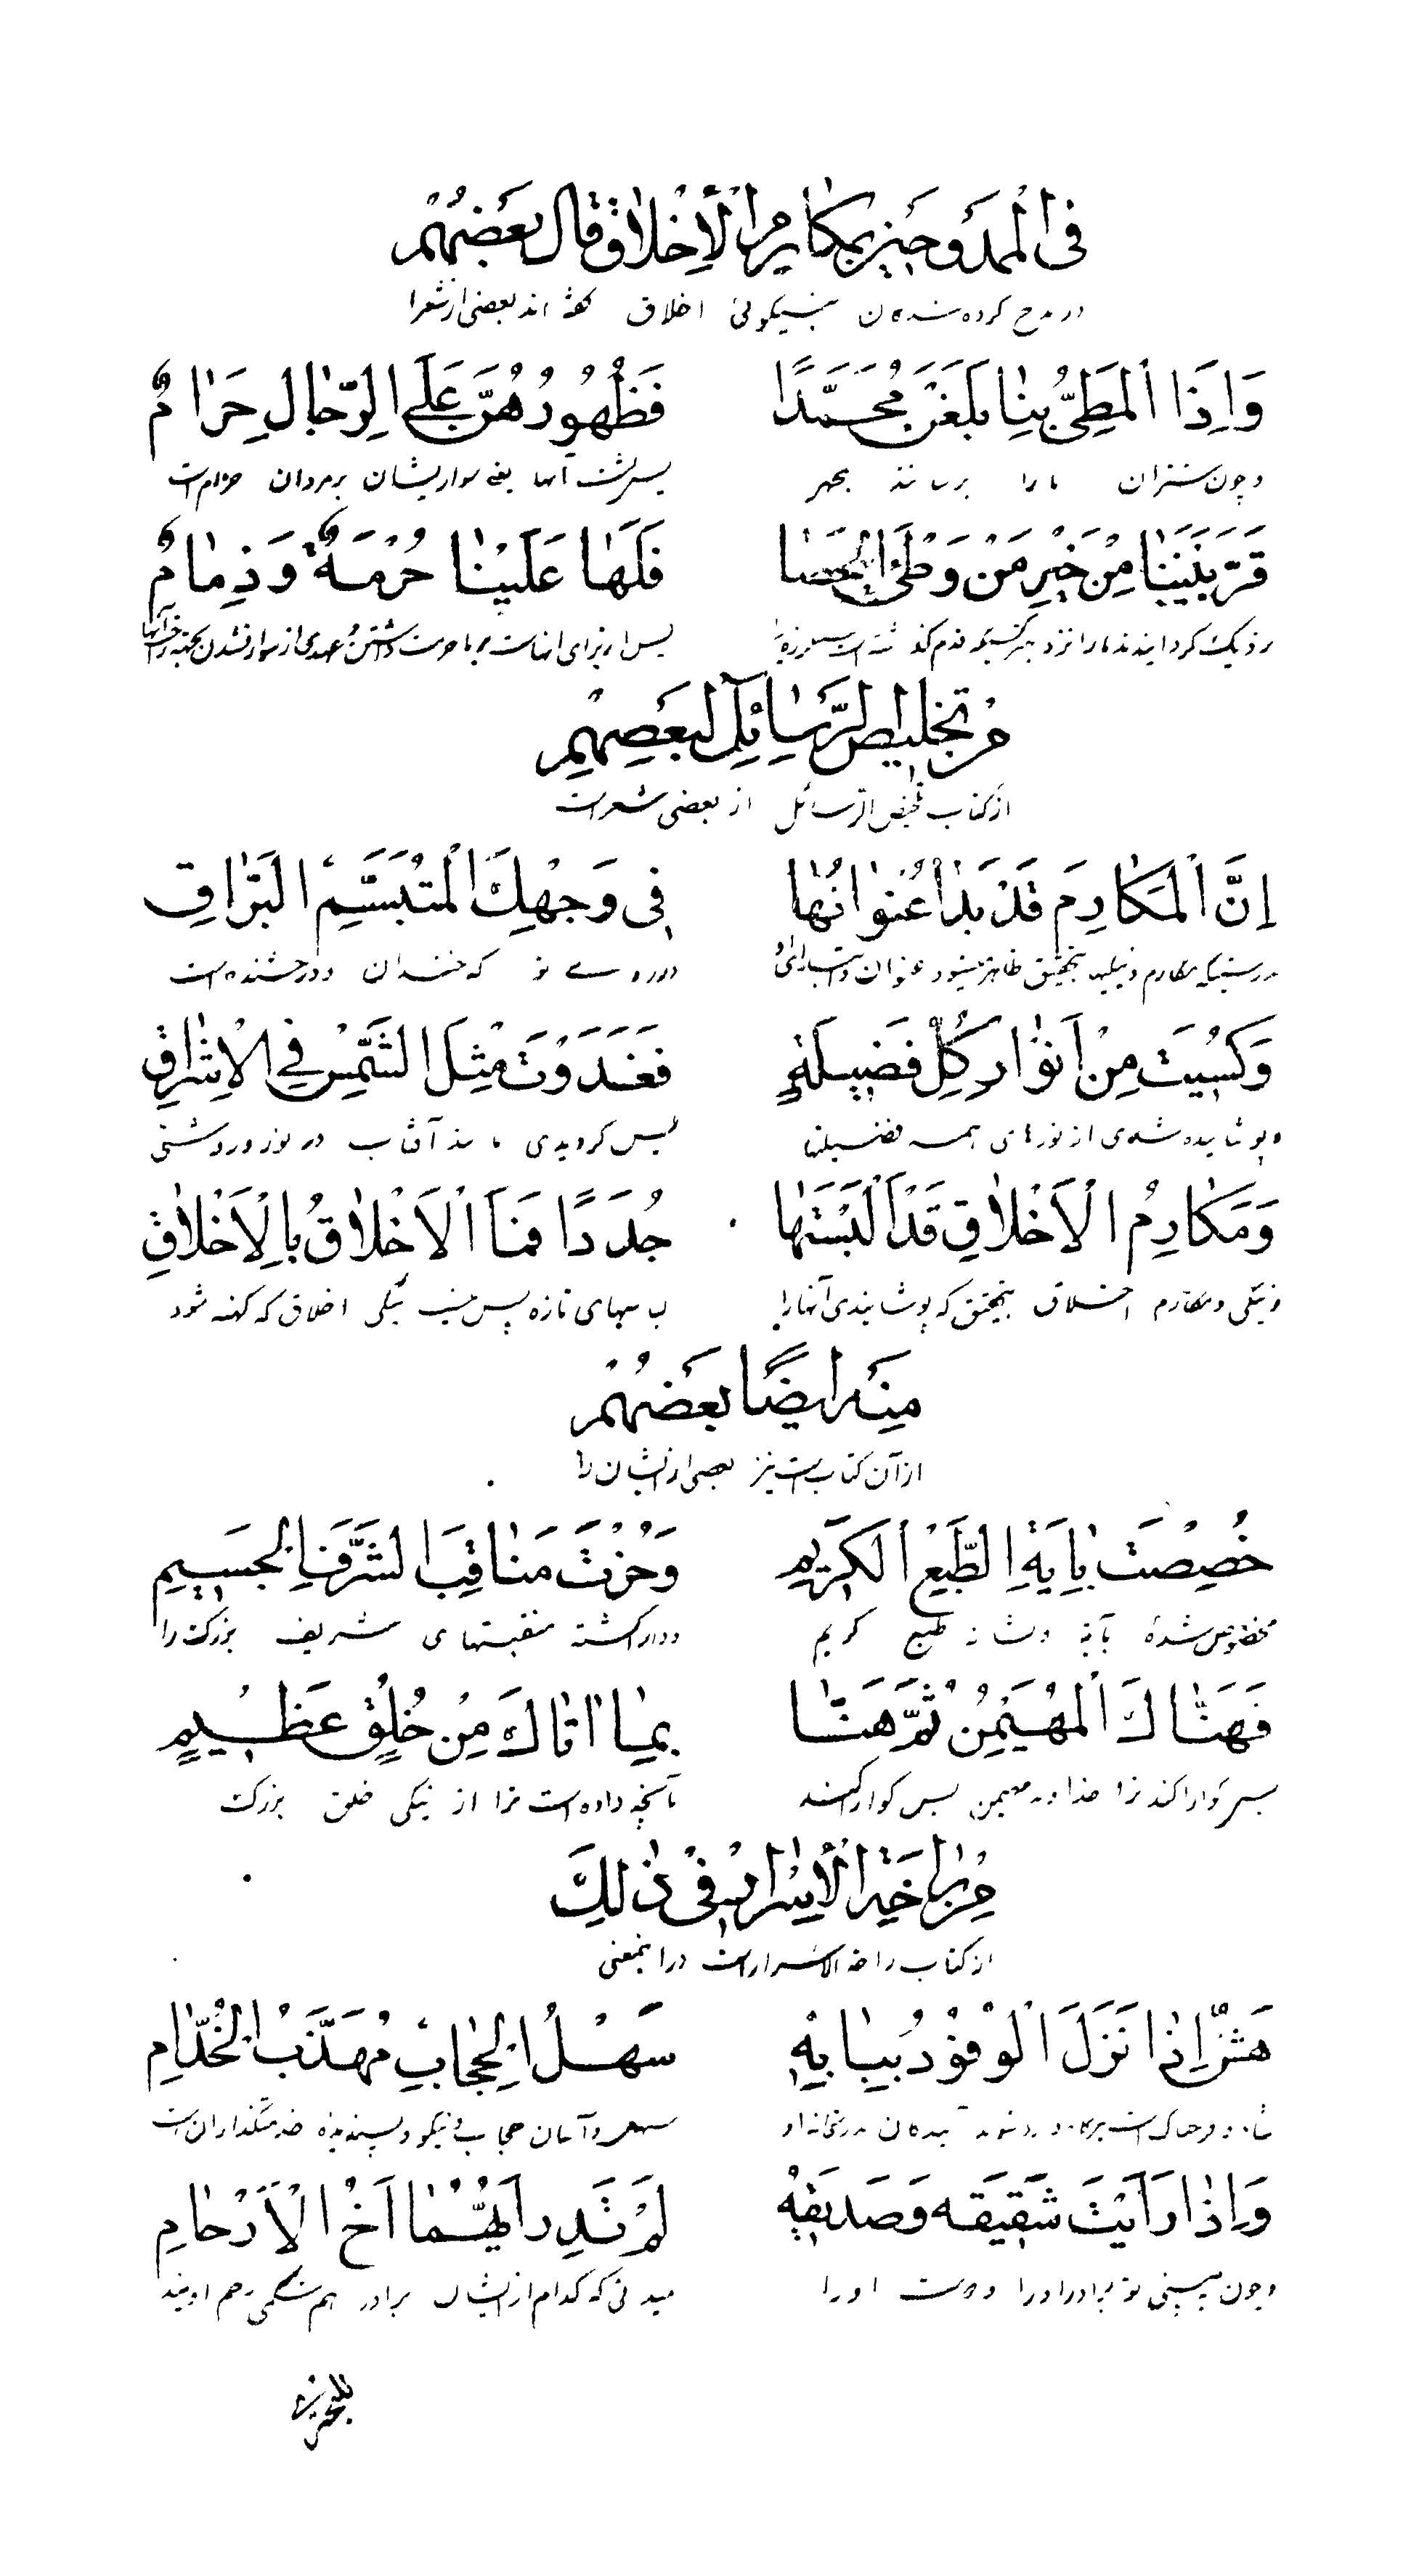 فِی الْمَمْدُوحِینَ بِمَکَارِمِ الْأَخْلَاقِ قَالَ بَعْضُهُمْ
در مدح کرده شده کان بنیکوئی اخلاق گفته اند بعضی از شعرا
وَاِذَا الْمَطِیُّ بِنَا بَلَغْنَ مُحَمَّدًا فَظُهُورُهُنَّ عَلَی الرِّجَالِ حَرَامٌ
و چون شتران ما را برسانند پس پشت آنها یعنی سواریشان بر مردان حرام است
قَرَّبْنَنَا مِنْ خَیْرِ مَنْ وَطِئَ الْحَصَا فَلَهَا عَلَیْنَا حُرْمَةٌ وَذِمَامٌ
نزدیک کرد ما را نزد پس از برای حرمت داشتن
مِنْ تَلْخِیصِ الرَّسَائِلِ لِبَعْضِهِمْ
از کتاب تلخیص الرسائل از بعضی شعراست
اِنَّ الْمَکَارِمَ قَدْ بَدَا عُنْوَانُهَا فِی وَجْهِکَ الْمُتَبَسِّمِ الْبَرَّاقِ
بدرستیکه مکارم و نیکیها بتحقیق ظاهر میشود عنوان در روی تو که خندان و درخشنده است
وَکُسِیتَ مِنْ اَنْوَارِ کُلِّ فَضِیلَةٍ فَغَدَوْتَ مِثْلَ الشَّمْسِ فِی الْاِشْرَاقِ
و پوشانیده شدی از نورهای همه فضیلتها پس کردیدی مانند آفتاب در نور و روشنی
وَمَکَارِمُ الْاَخْلَاقِ قَدْ اَلْبَسْتَهَا جُدَدًا فَمَا الْاَخْلَاقُ بِالْاَخْلَاقِ
و نیکی و مکارم اخلاق بتحقیق که پوشانیدی آنها را لباسهای تازه پس نیست نیکی اخلاق که کهنه شود
مِنْهُ اَیْضًا بَعْضُهُمْ
از آن کتاب است نیز بعضی از ایشان را
خُصِصْتَ بِاٰیَةِ الطَّبْعِ الْکَرِیمِ وَحُزْتَ مَنَاقِبَ الشَّرَفِ الْجَسِیمِ
مخصوص شدهٔ بآیه و نشانه طبع کریم و دارا کشته منقبتهای شریف بزرک را
فَهَنَّاکَ الْمُهَیْمِنُ ثُمَّ هَنَّا بِمَا اٰتَاکَ مِنْ خُلُقٍ عَظِیمٍ
پس کوارا کند ترا خداوند مهیمن پس کوارا کند بآنچه داده است ترا از نیکی خلق بزرک
مِنْ رَاحَةِ الْأَسْرَارِ فِی ذٰلِکَ
از کتاب راحة الاسرار است در اینمعنی
هَشٌّ اِذَا نَزَلَ الْوُفُودُ بِبَابِهِ سَهْلُ الْحِجَابِ مُهَذَّبُ الْخُدَّامِ
سهل و آسان حجاب و نیکو و پسندیده خدمتگذاران است
وَاِذَا رَاَیْتَ شَقِیقَهُ وَصَدِیقَهُ لَمْ تَدْرِ اَیُّهُمَا اَخُ الْاَرْحَامِ
و چون ببینی تو برادر او را و دوست او را کدام از ایشان برادر هم شکمی